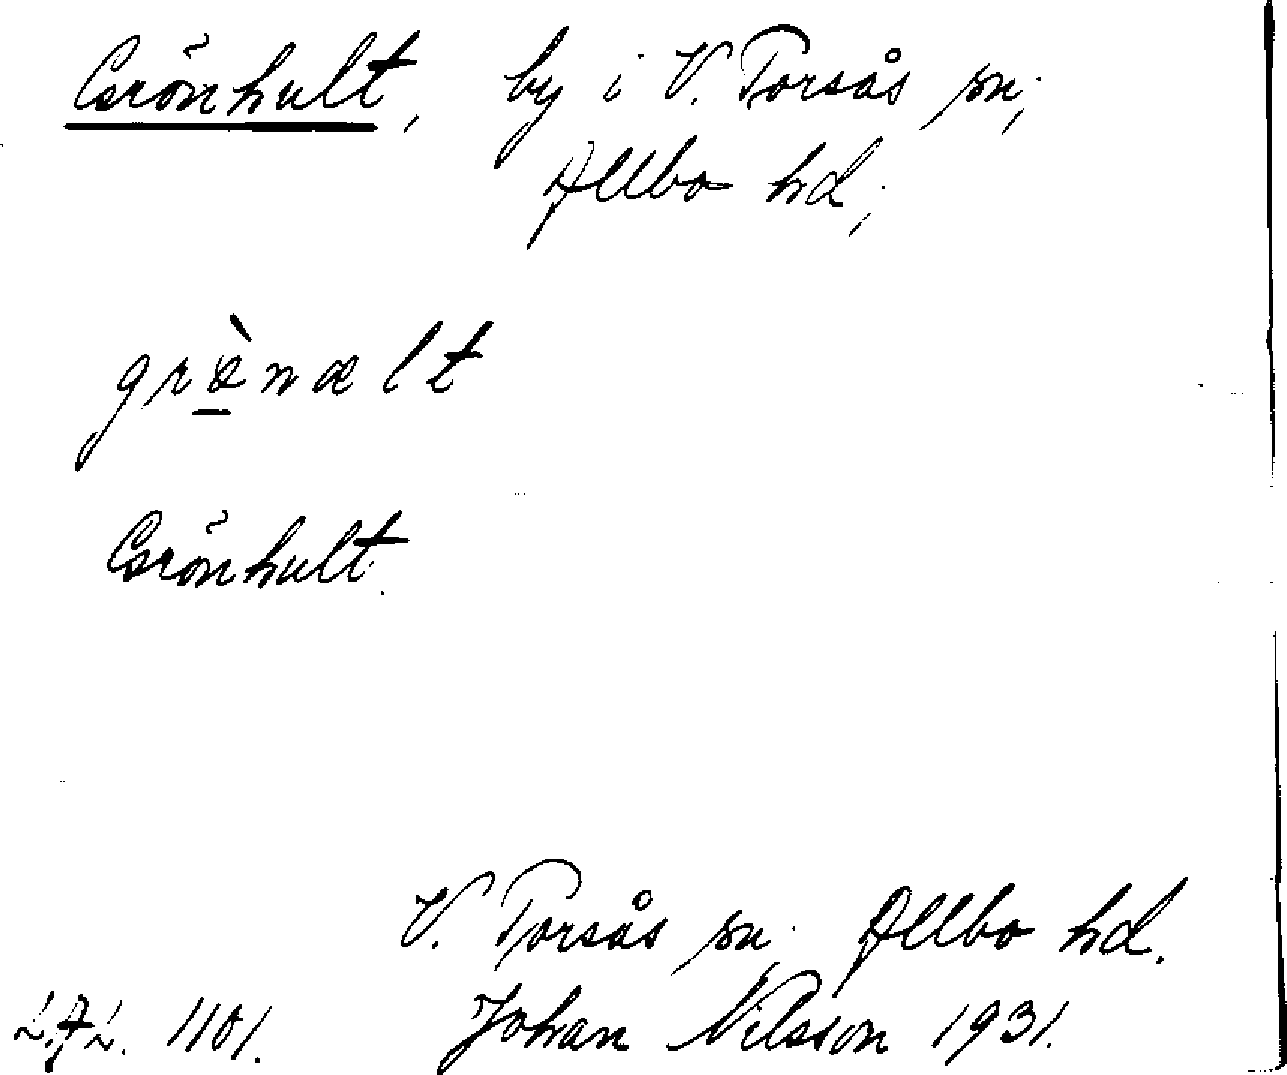 Grönhult, by i V. Torsås sn;
Allbo hd;
grœ̀nælt
Grönhult.
V. Torsås sn. Allbo hd.
L.F.L. 1101. Johan Nilsson 1931.